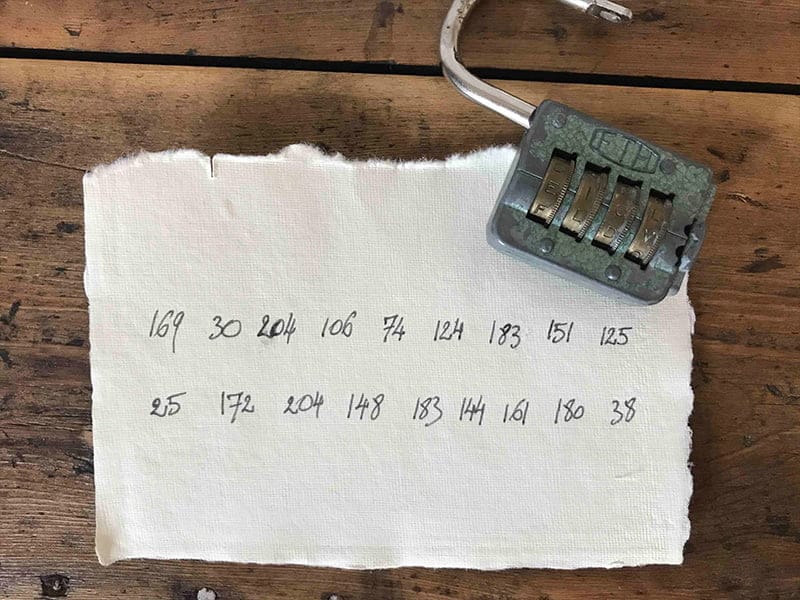 FTH
169 30 204 106 74 124 183 151 125
25 172 204 148 183 144 161 180 38